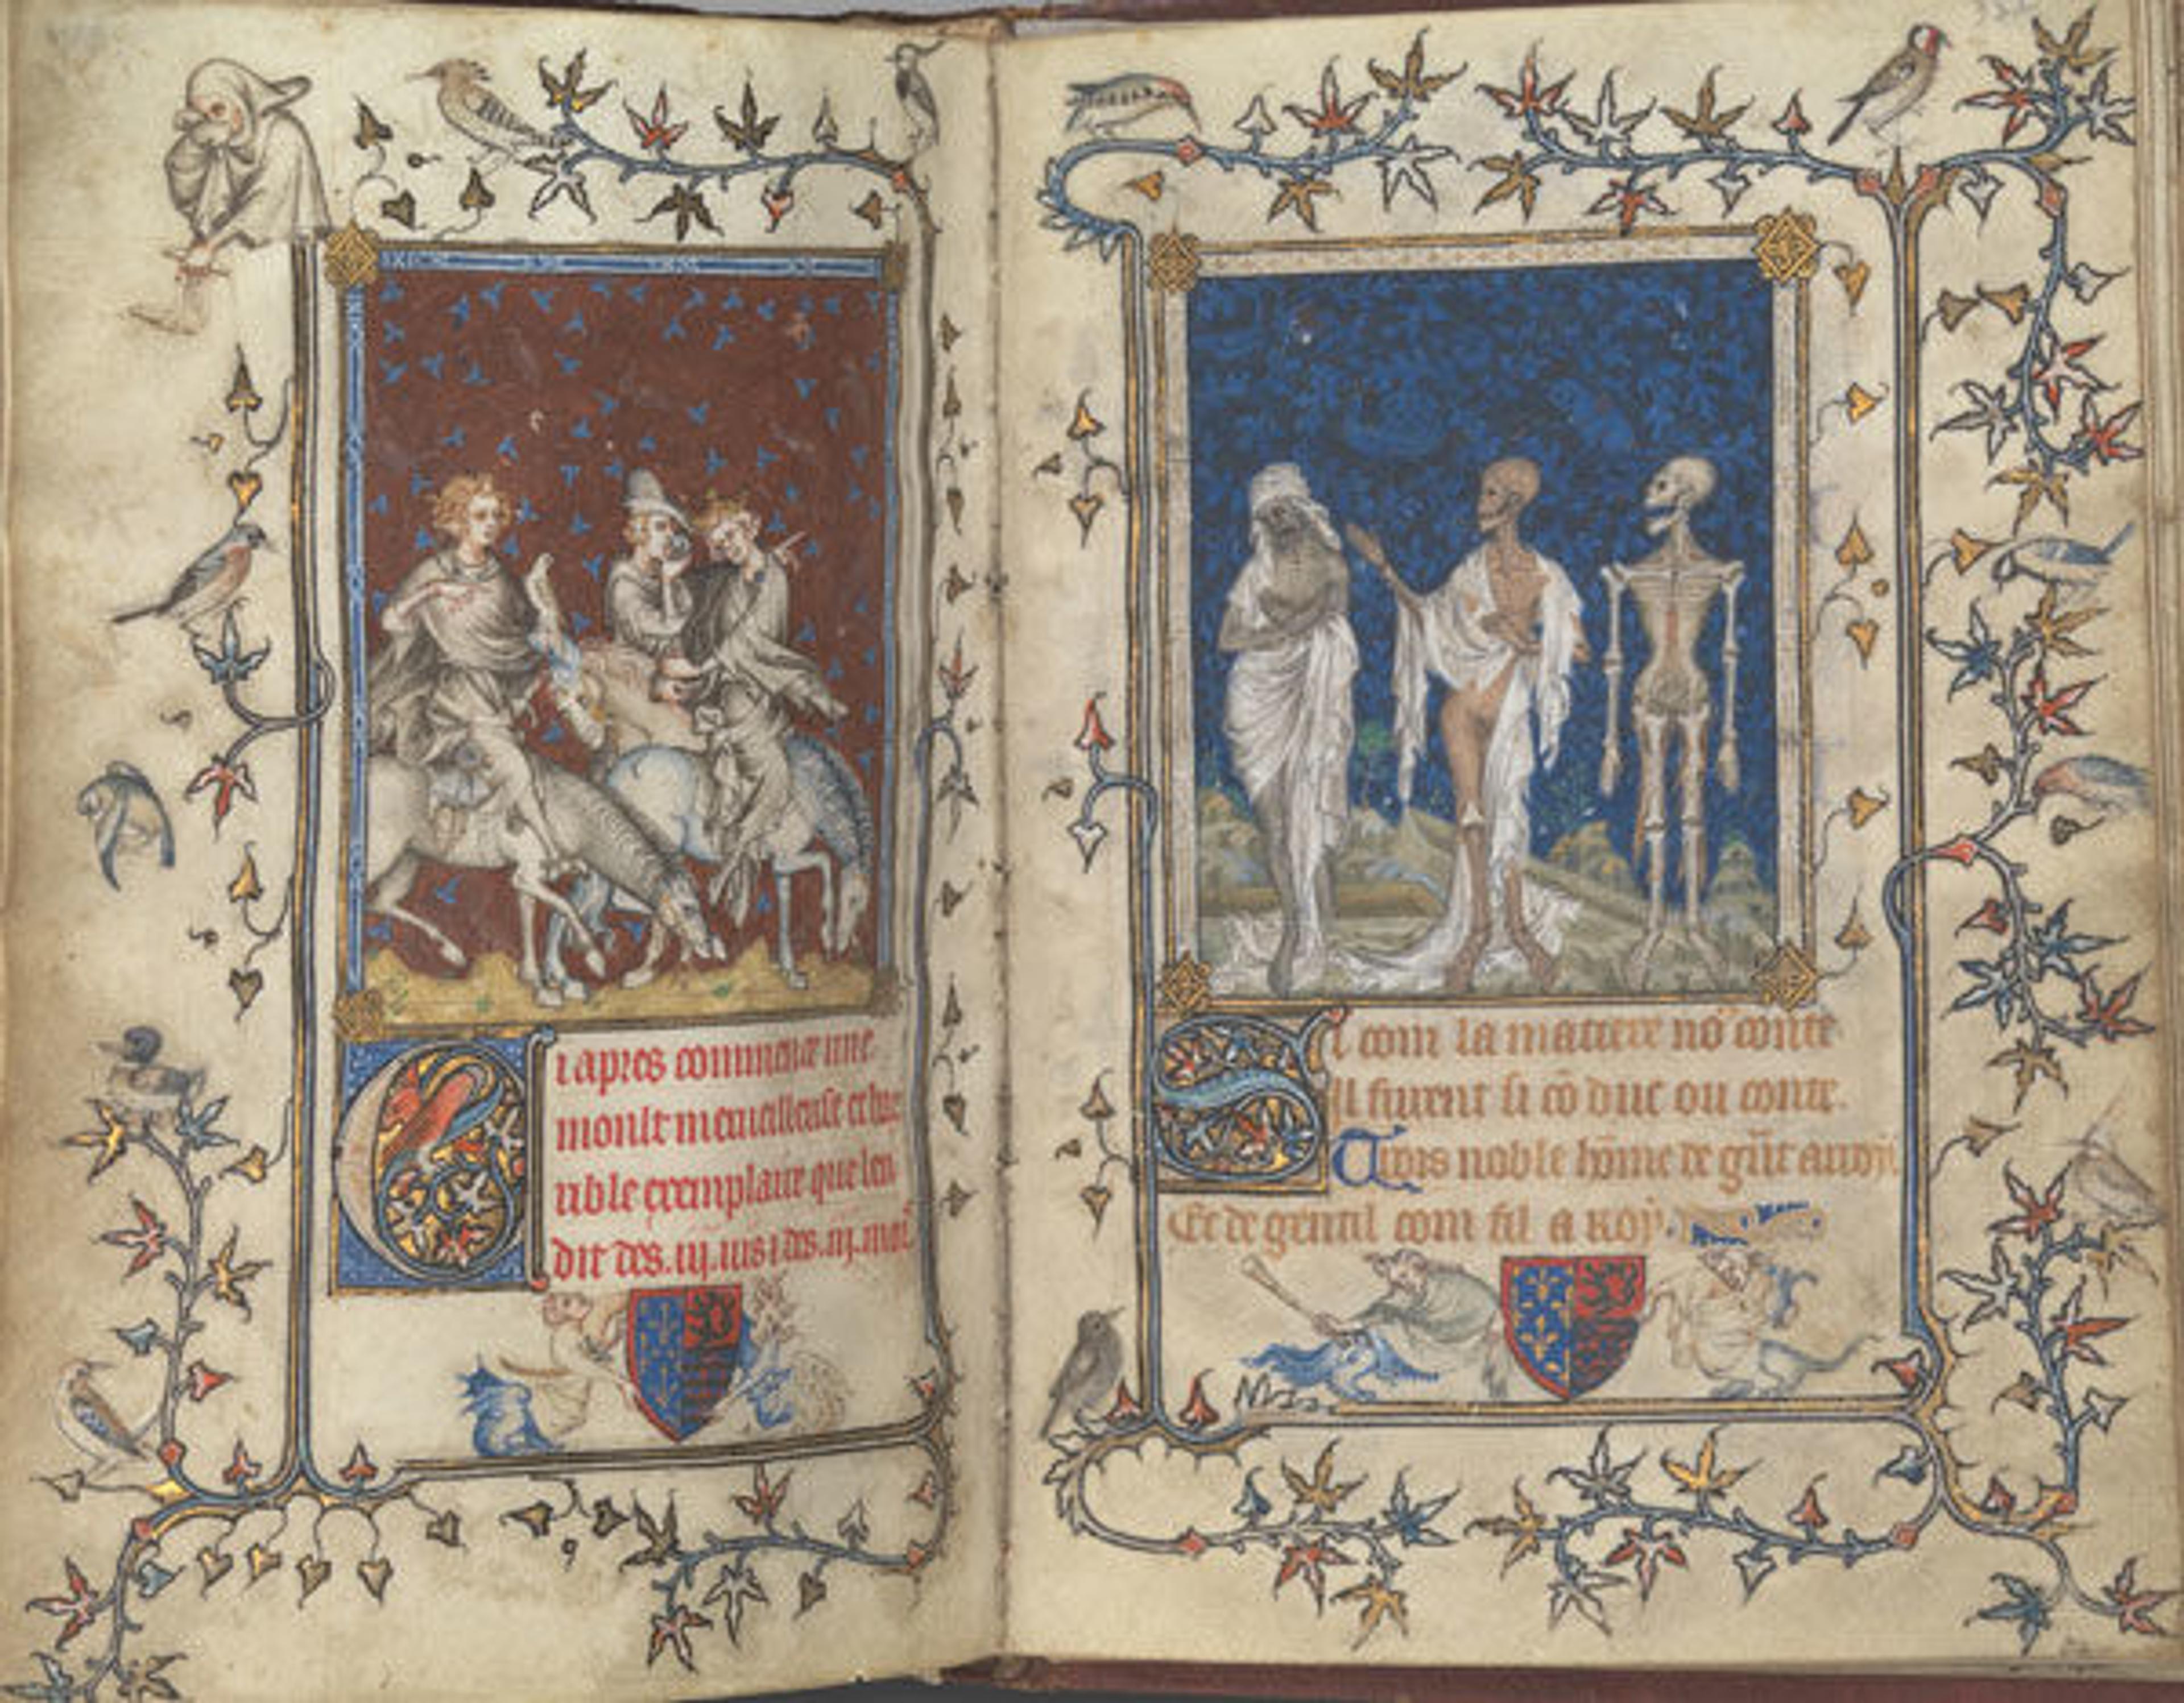 Ci apres commence une
moult merueilleuse et hor
rible exemplaire que len
dit des .iij. uis ⁊ des .iij. mors
Si com la matiere nō conte
Il furent si cō duc ou conte.
Trois noble hōme de grāt arroy
Et de gentil com fil a roy.